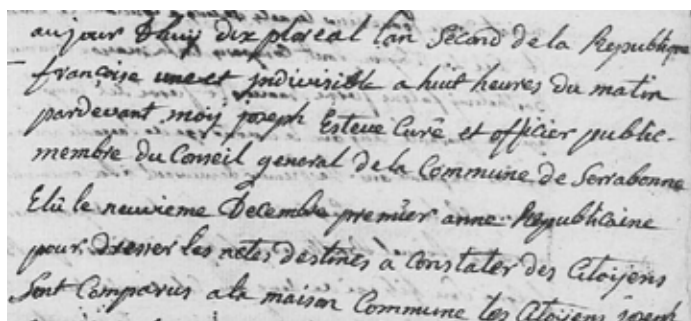 aujour d'huy dix ploreal l'an Second de la Republique
françoise une et jndivisible a huit heures du matin
pardevant moy joseph Esteve Curé et officier public
membre du Conseil general de la Commune de Serrabonne
Elû le neuvieme Decembre premier anne Republicaine
pour dresser les actes destinés à constater des Citoyens
Sont Comparus a la maison Commune les Citoyens joseph